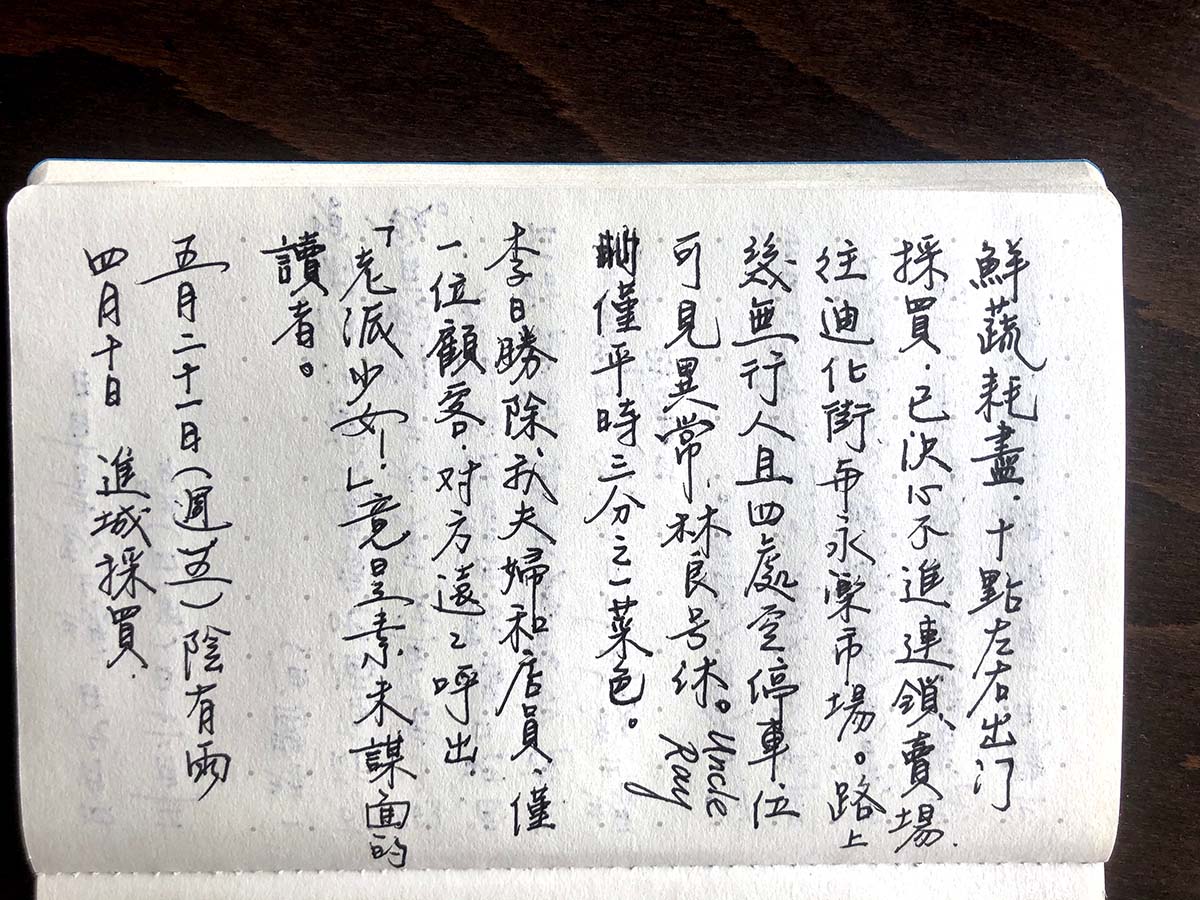 鮮蔬耗盡.十點左右出门
採買.已決心不進連鎖賣場.
往迪化街永樂市場。路上
幾無行人且四處空停車位
可見異常.林良号休。Uncle Ray
僅平時三分之一菜色。
李日勝除我夫婦和店員.僅
一位顧客.对方遠々呼出.
「老派少女.」竟是素未謀面的
讀者。
五月二十一日(週五)陰有雨
四月十日 進城採買.